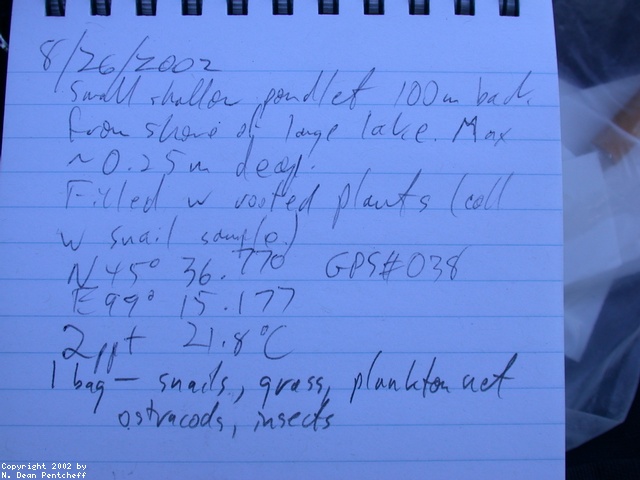 8/26/2002
Small shallow pondlet 100m back
from shore of large lake. Max
~ 0.25m deep.
Filled w rooted plants (coll
w snail sample)
N 45° 36.770 GPS#038
E 99° 15.177
2ppt 21.8°C
1 bag — snails, grass, plankton net
ostracods, insects
Copyright 2002 by
N. Dean Pentcheff